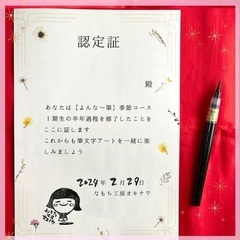 認定証
殿
あなたは【よんな〜筆】季節コース
1期生の半年過程を修了したことを
ここに証します
これからも筆文字アートを一緒に楽
しみましょう
2024年 2月29日
なもち工房オキナワ